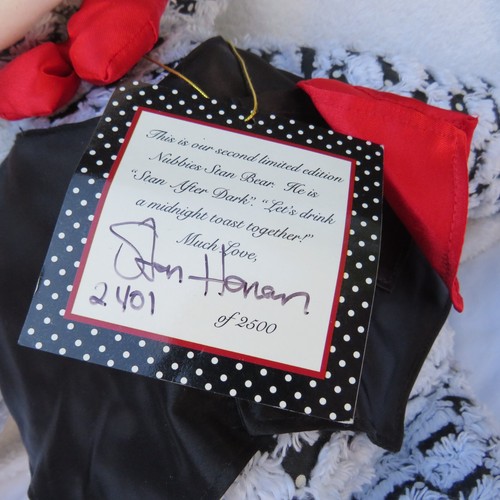 This is our second limited edition
Nubbies Stan Bear. He is
"Stan After Dark". "Let's drink
a midnight toast together!"
Much Love,
Stan Herman
2401
of 2500